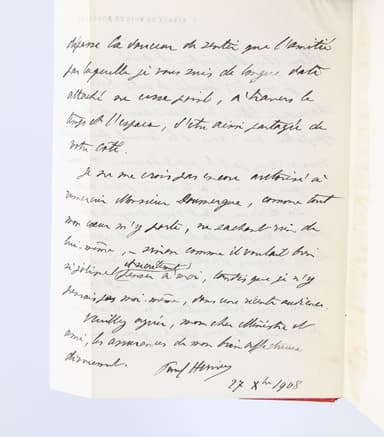 dépasse la douceur de sentir que l'amitié
par laquelle je vous suis de longue date
attaché ne cesse point, à travers le
temps et l'espace, d'être ainsi partagée de
votre côté.
Je ne me crois pas encore autorisé à
remercier Monsieur Doumergue, comme tout
mon cœur m'y porte, ne sachant rien de
lui-même, sinon comme il voulait bien
si joliment
penser à moi, tandis que je n'y
pensais pas moi-même, dans une récente audience.
Veuillez agréer, mon cher Ministre et
ami, les assurances de mon bien affectueux
dévouement.
Paul Hervieu
27 Xbre 1908